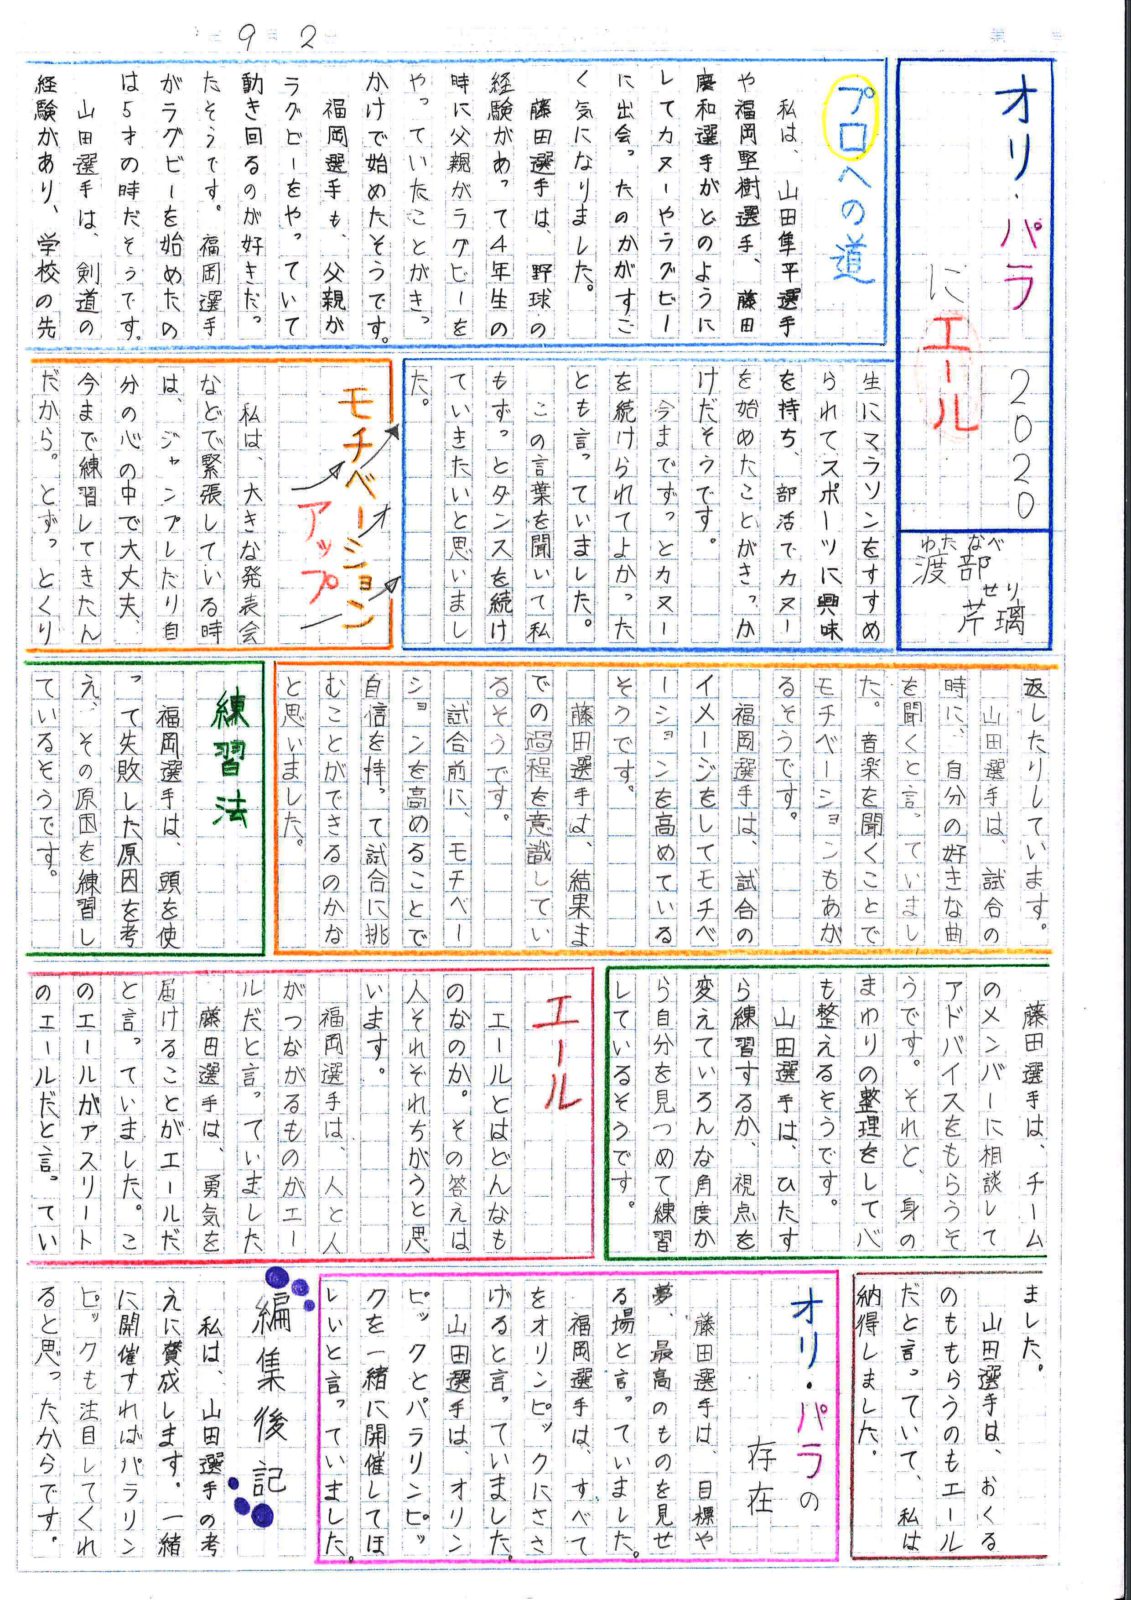 9 2
オリ・パラ2020
にエール
わたなべ
渡部
せり
芹璃
プロへの道
私は、山田隼平選手
や福岡堅樹選手、藤田
慶和選手がどのように
してカヌーやラグビー
に出会ったのかがすご
く気になりました。
藤田選手は、野球の
経験があって4年生の
時に父親がラグビーを
やっていたことがきっ
かけで始めたそうです。
福岡選手も、父親が
ラグビーをやっていて
動き回るのが好きだっ
たそうです。福岡選手
がラグビーを始めたの
は5才の時だそうです。
山田選手は、剣道の
経験があり、学校の先
生にマラソンをすすめ
られてスポーツに興味
を持ち、部活でカヌー
を始めたことがきっか
けだそうです。
今までずっとカヌー
を続けられてよかった
とも言っていました。
この言葉を聞いて私
もずっとダンスを続け
ていきたいと思いまし
た。
モチベーション
アップ
私は、大きな発表会
などで緊張している時
は、ジャンプしたり自
分の心の中で大丈夫、
今まで練習してきたん
だから。とずっとくり
返したりしています。
山田選手は、試合の
時に、自分の好きな曲
を聞くと言っていまし
た。音楽を聞くことで
モチベーションもあが
るそうです。
福岡選手は、試合の
イメージをしてモチベ
ーションを高めている
そうです。
藤田選手は、結果ま
での過程を意識してい
るそうです。
試合前に、モチベー
ションを高めることで
自信を持って試合に挑
むことができるのかな
と思いました。
練習法
福岡選手は、頭を使
って失敗した原因を考
え、その原因を練習し
ているそうです。
藤田選手は、チーム
のメンバーに相談して
アドバイスをもらうそ
うです。それと、身の
まわりの整理をして心
も整えるそうです。
山田選手は、ひたす
ら練習するか、視点を
変えていろんな角度か
ら自分を見つめて練習
しているそうです。
エール
エールとはどんなも
のなのか。その答えは
人それぞれちがうと思
います。
福岡選手は、人と人
がつながるものがエー
ルだと言っていました
藤田選手は、勇気を
届けることがエールだ
と言っていました。こ
のエールがアスリート
のエールだと言ってい
ました。
山田選手は、おくる
のももらうのもエール
だと言っていて、私は
納得しました。
オリ・パラの
存在
藤田選手は、目標や
夢、最高のものを見せ
る場と言っていました。
福岡選手は、すべて
をオリンピックにささ
げると言っていました。
山田選手は、オリン
ピックとパラリンピッ
クを一緒に開催してほ
しいと言っていました。
編集後記
私は、山田選手の考
えに賛成します。一緒
に開催すればパラリン
ピックも注目してくれ
ると思ったからです。